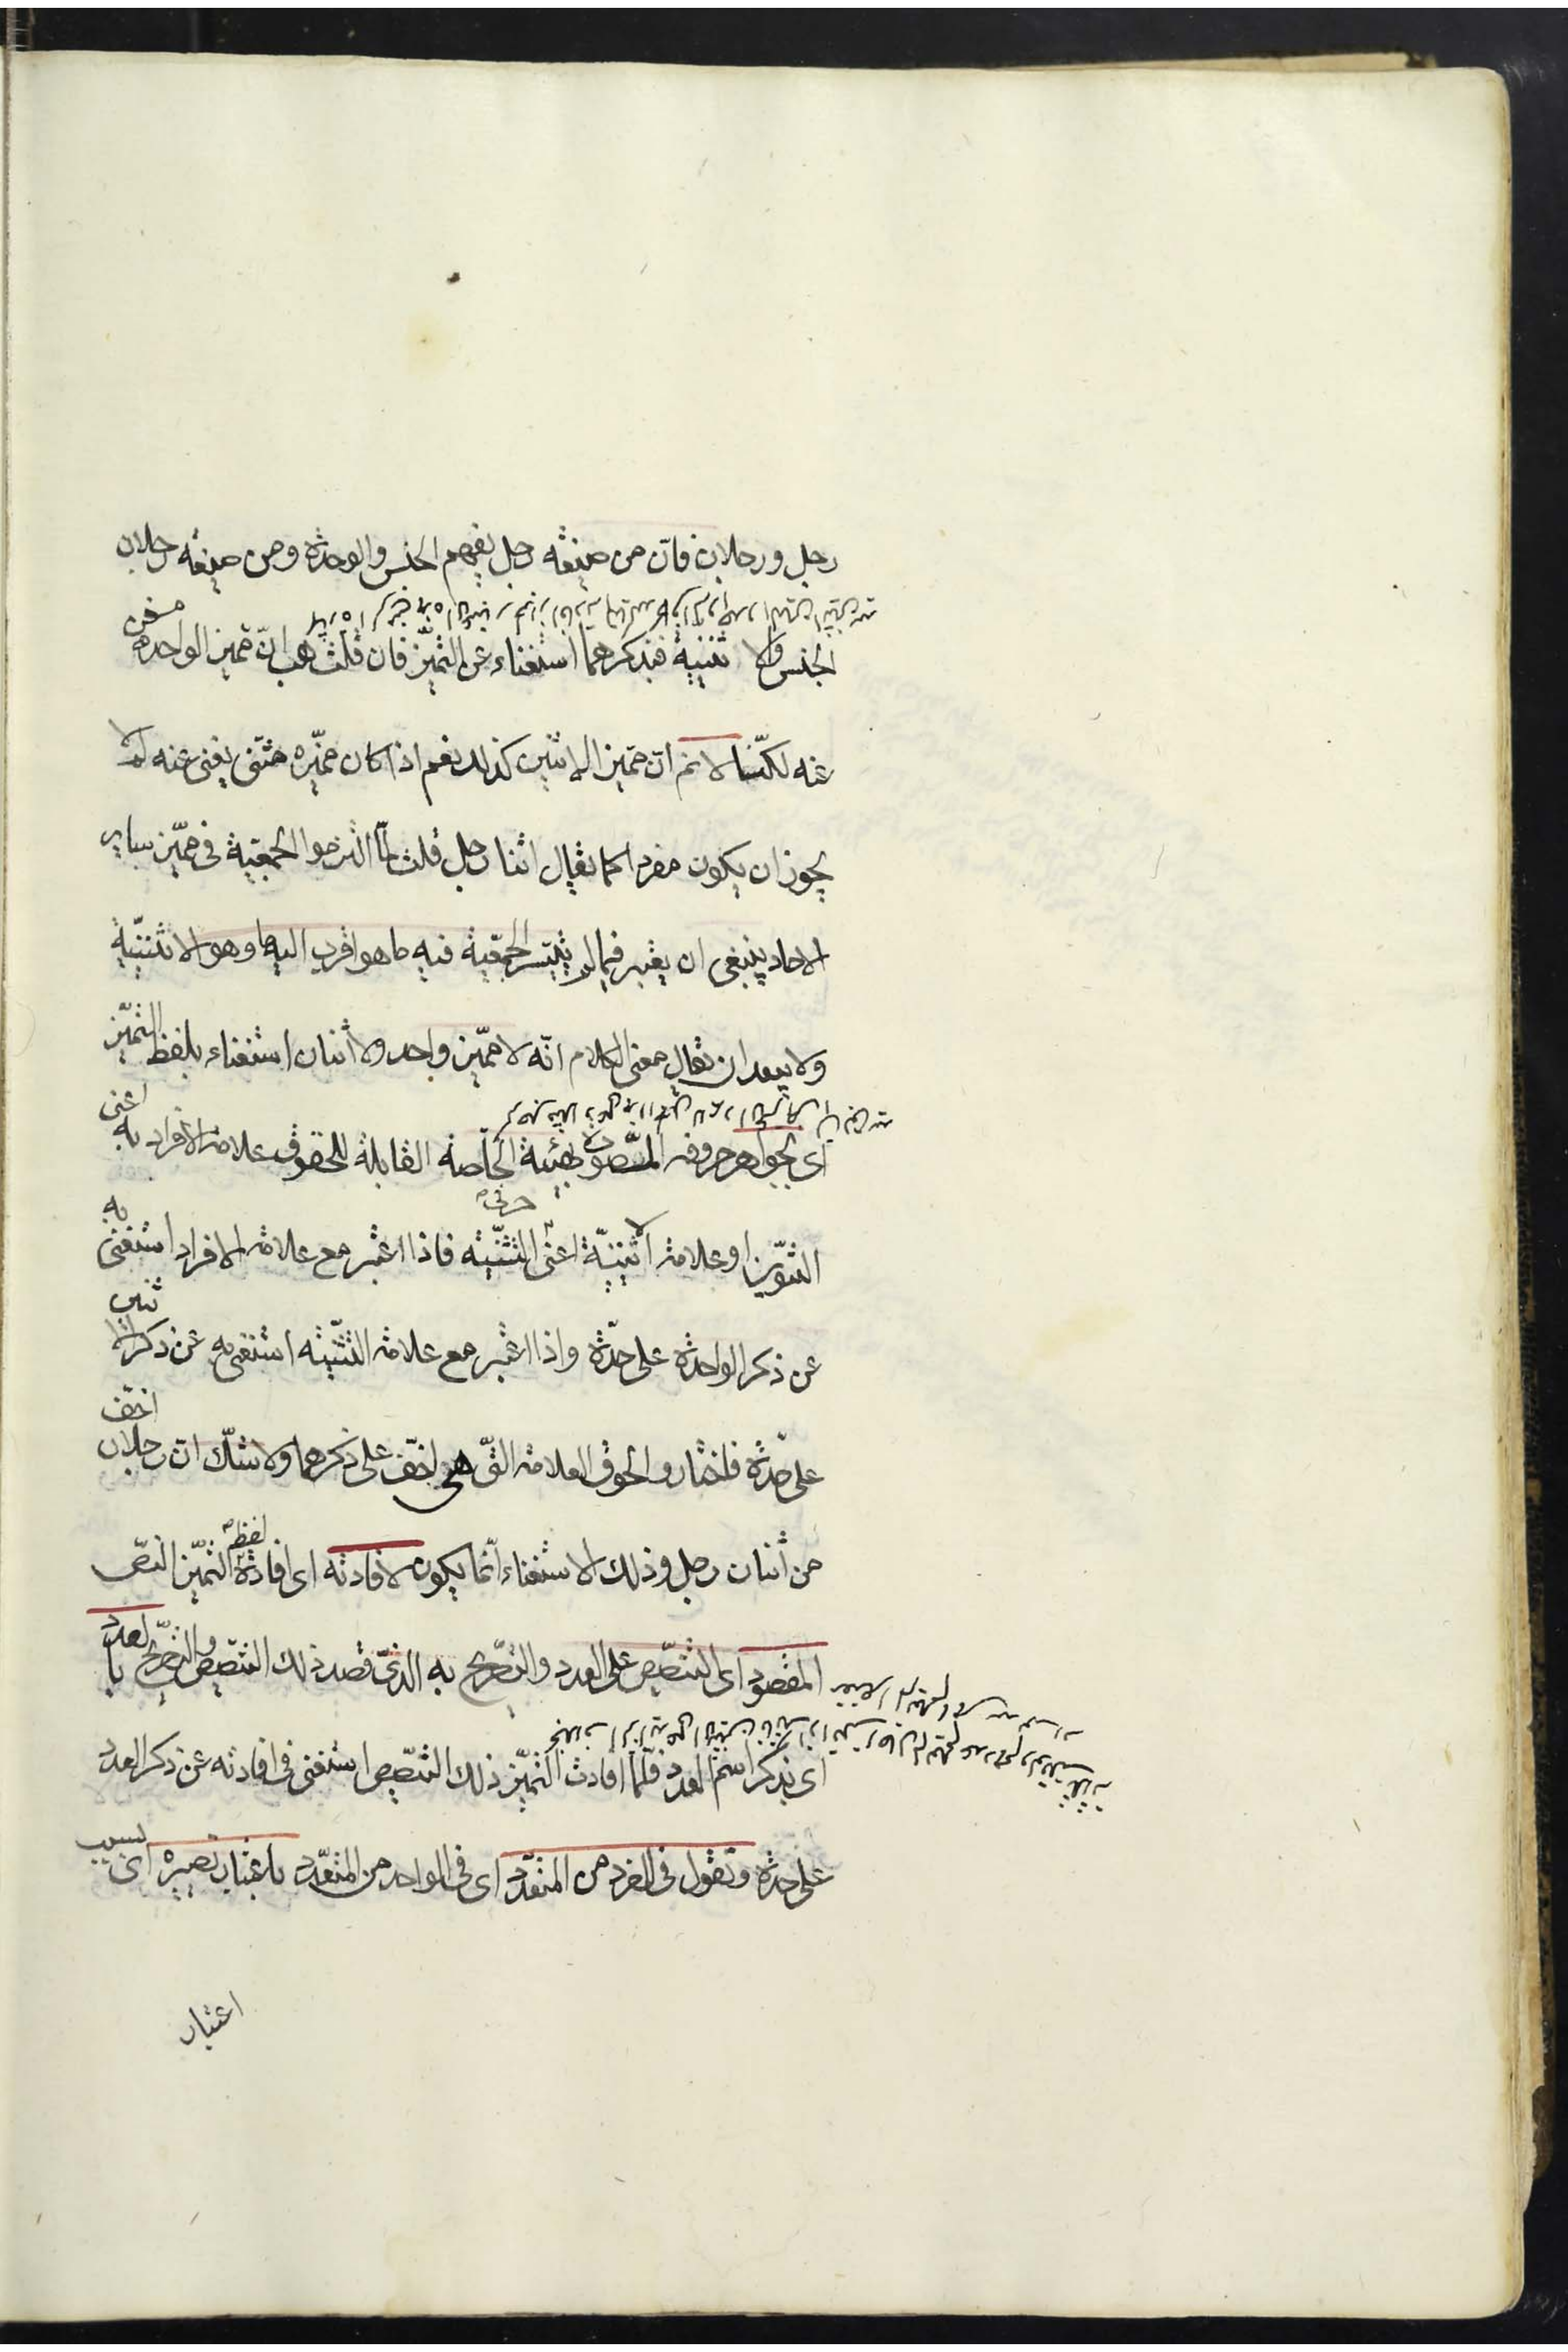 رجل ورجلان فان من صيغته رجل يفهم الجنس والوحدة ومن صيغته رجلان
الجنس والاثنينية فبذكرهما استغناء عن التميز فان قلت هب ان مميز الواحد مغن
عنه لكنا لا نم ان مميز الاثنين كذلك نعم اذا كان مميزه مثنى يغنى عنه لم لا
يجوز ان يكون مفردا كما يقال اثنا رجل قلت لما التزموا الجمعية فى مميز ساير
الاحاد ينبغى ان يعتبر فيما لم يتيسر الجمعية فيه ما هو اقرب اليها وهو الاثنينية
ولا يبعد ان يقال معنى الكلام انه لا مميز واحد ولا اثنان استغناء بلفظ التميز
اى بجواهر حروفه المتصورة بهيئته الخاصة القابلة للحقوق علامة الافراد به اعنى
التنوين او علامة الاثنينية اعنى حرفى التثنية فاذا اعتبر مع علامة الافراد استغنى به
عن ذكر الواحدة على حدة واذا اعتبر مع علامة التثنية استغنى به عن ذكر اثنين
على حدة فاختاروا لحوق العلامة التى هى اخف على ذكرهما ولا شك ان رجلان اخف
من اثنان رجل وذلك الاستغناء انما يكون لافادته اى افادة لفظ التميز النص
المقصود اى التنصيص على العدد والتصريح به الذى قصد ذلك التنصيص والتصريح بالعدد
اى بذكر اسم العدد فلما افادت التميز ذلك التنصيص استغنى فى افادته عن ذكر العدد
على حدة وتقول فى المفرد من المتعدد اى فى الواحد من المتعدد باعتبار تصييره اى بسبب
اعتبار